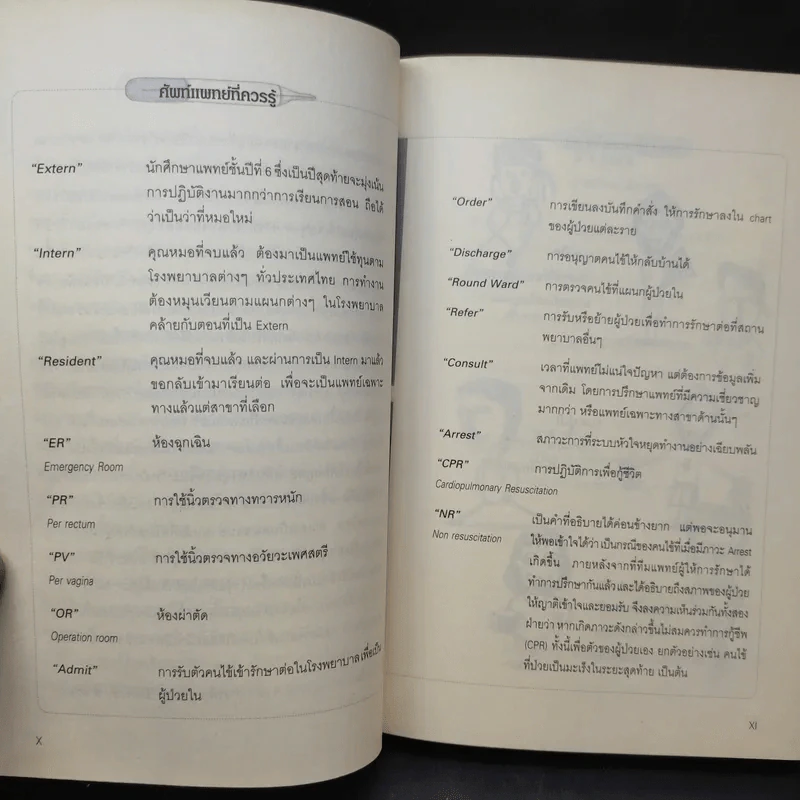 ศัพท์แพทย์ที่ควรรู้
“Extern” นักศึกษาแพทย์ชั้นปีที่ 6 ซึ่งเป็นปีสุดท้ายจะมุ่งเน้น
การปฏิบัติงานมากกว่าการเรียนการสอน ถือได้
ว่าเป็นว่าที่หมอใหม่
“Intern” คุณหมอที่จบแล้ว ต้องมาเป็นแพทย์ใช้ทุนตาม
โรงพยาบาลต่างๆ ทั่วประเทศไทย การทำงาน
ต้องหมุนเวียนตามแผนกต่างๆ ในโรงพยาบาล
คล้ายกับตอนที่เป็น Extern
“Resident” คุณหมอที่จบแล้ว และผ่านการเป็น Intern มาแล้ว
ขอกลับเข้ามาเรียนต่อ เพื่อจะเป็นแพทย์เฉพาะ
ทางแล้วแต่สาขาที่เลือก
“ER” ห้องฉุกเฉิน
Emergency Room
“PR” การใช้นิ้วตรวจทางทวารหนัก
Per rectum
“PV” การใช้นิ้วตรวจทางอวัยวะเพศสตรี
Per vagina
“OR” ห้องผ่าตัด
Operation room
“Admit” การรับตัวคนไข้เข้ารักษาต่อในโรงพยาบาลเพื่อเป็น
ผู้ป่วยใน
X
“Order” การเขียนลงบันทึกคำสั่ง ให้การรักษาลงใน chart
ของผู้ป่วยแต่ละราย
“Discharge” การอนุญาตคนไข้ให้กลับบ้านได้
“Round Ward” การตรวจคนไข้ที่แผนกผู้ป่วยใน
“Refer” การรับหรือย้ายผู้ป่วยเพื่อทำการรักษาต่อที่สถาน
พยาบาลอื่นๆ
“Consult” เวลาที่แพทย์ไม่แน่ใจปัญหา แต่ต้องการข้อมูลเพิ่ม
จากเดิม โดยการปรึกษาแพทย์ที่มีความเชี่ยวชาญ
มากกว่า หรือแพทย์เฉพาะทางสาขาด้านนั้นๆ
“Arrest” สภาวะการที่ระบบหัวใจหยุดทำงานอย่างเฉียบพลัน
“CPR” การปฏิบัติการเพื่อกู้ชีวิต
Cardiopulmonary Resuscitation
“NR” เป็นคำที่อธิบายได้ค่อนข้างยาก แต่พอจะอนุมาน
Non resuscitation ให้พอเข้าใจได้ว่า เป็นกรณีของคนไข้ที่เมื่อมีภาวะ Arrest
เกิดขึ้น ภายหลังจากที่ทีมแพทย์ผู้ให้การรักษาได้
ทำการปรึกษากันแล้ว และได้อธิบายถึงสภาพของผู้ป่วย
ให้ญาติเข้าใจและยอมรับ จึงลงความเห็นร่วมกันทั้งสอง
ฝ่ายว่า หากเกิดภาวะดังกล่าวขึ้นไม่สมควรทำการกู้ชีพ
(CPR) ทั้งนี้เพื่อตัวของผู้ป่วยเอง ยกตัวอย่างเช่น คนไข้
ที่ป่วยเป็นมะเร็งในระยะสุดท้าย เป็นต้น
XI